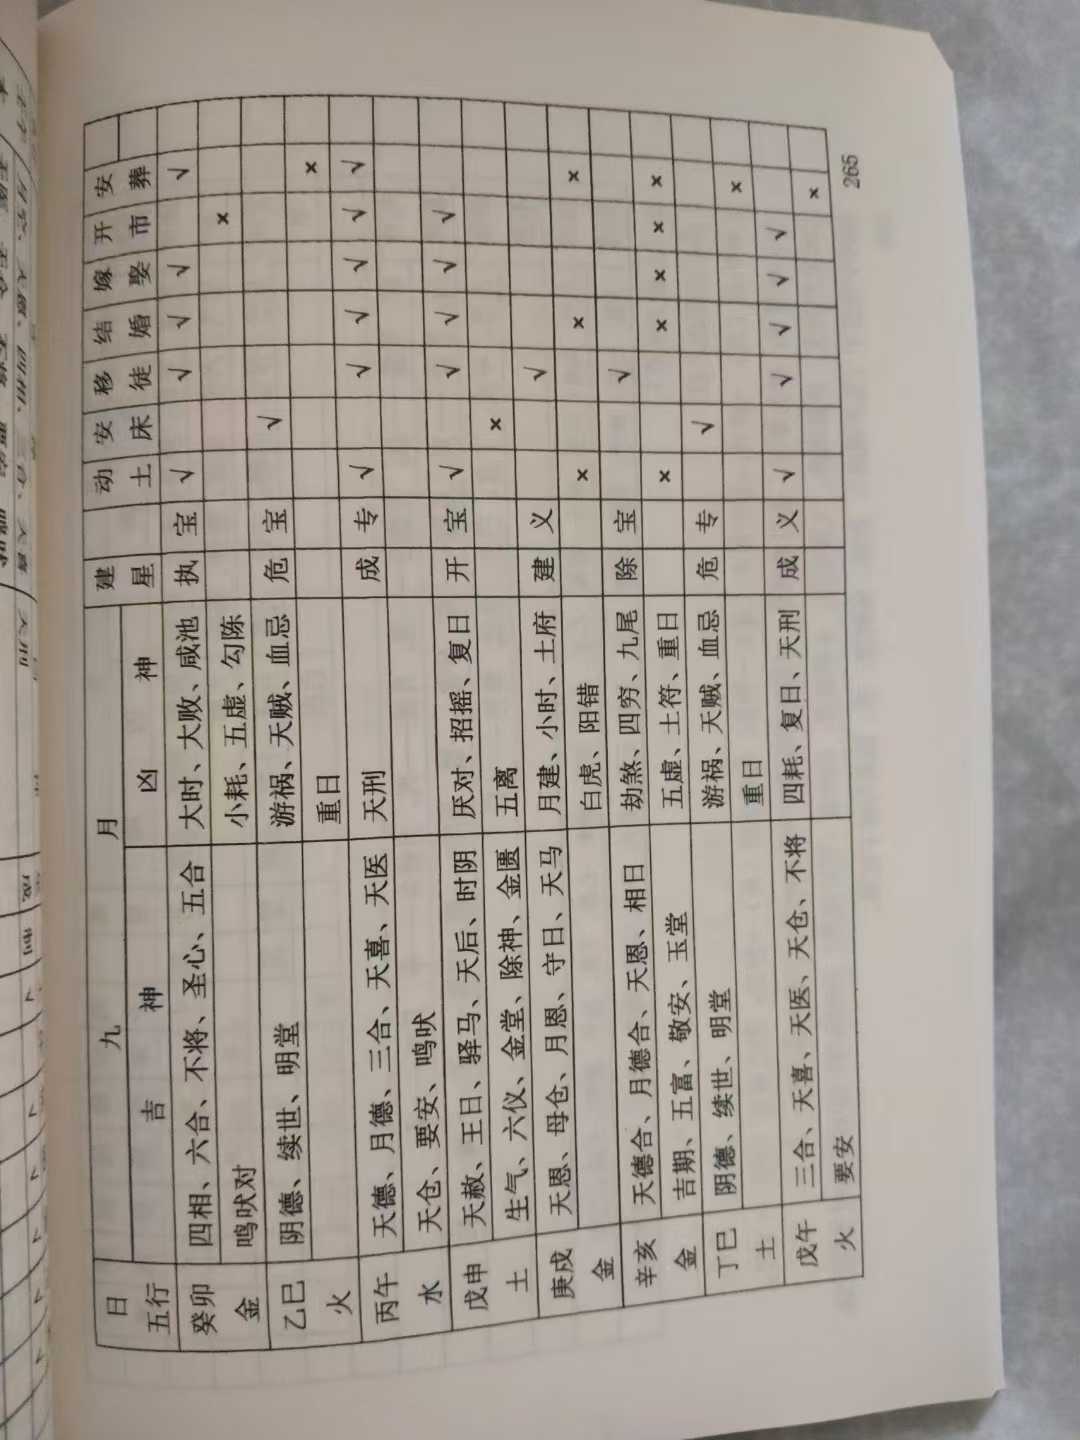 日 九 月 建 动 安 移 结 嫁 开 安
五行 吉 神 凶 神 星 土 床 徒 婚 娶 市 葬
癸卯 四相、六合、不将、圣心、五合 大时、大败、咸池 执 宝 √ √ √ √ √
金 鸣吠对 小耗、五虚、勾陈 ×
乙巳 阴德、续世、明堂 游祸、天贼、血忌 危 宝 √
火 重日 ×
丙午 天德、月德、三合、天喜、天医 天刑 成 专 √ √ √ √ √ √
水 天仓、要安、鸣吠
戊申 天赦、王日、驿马、天后、时阴 厌对、招摇、复日 开 宝 √ √ √ √ √
土 生气、六仪、金堂、除神、金匮 五离 ×
庚戌 天恩、母仓、月恩、守日、天马 月建、小时、土府 建 义 √
金 白虎、阳错 × × ×
辛亥 天德合、月德合、天恩、相日 劫煞、四穷、九尾 除 宝 √
金 吉期、五富、敬安、玉堂 五虚、土符、重日 × × × × ×
丁巳 阴德、续世、明堂 游祸、天贼、血忌 危 专 √
土 重日 ×
戊午 三合、天喜、天医、天仓、不将 四耗、复日、天刑 成 义 √ √ √ √ √
火 要安 ×
265